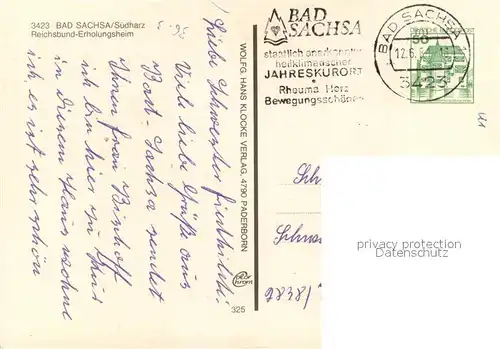 3423 BAD SACHSA/Südharz
Reichsbund-Erholungsheim
BAD SACHSA
staatlich anerkannter
heilklimatischer
JAHRESKURORT
Rheuma Herz
Bewegungsschäden
BAD SACHSA 1
12.6.
3423
50
Liebe Schwester
Viele liebe Grüße aus
Bad-Sachsa sendet
Ihnen Frau Bischoff
ich bin hier zu Kur
in diesem Haus wohne
ich es ist sehr schön
WOLFG. HANS KLOCKE VERLAG, 4790 PADERBORN
325
privacy protection
Datenschutz